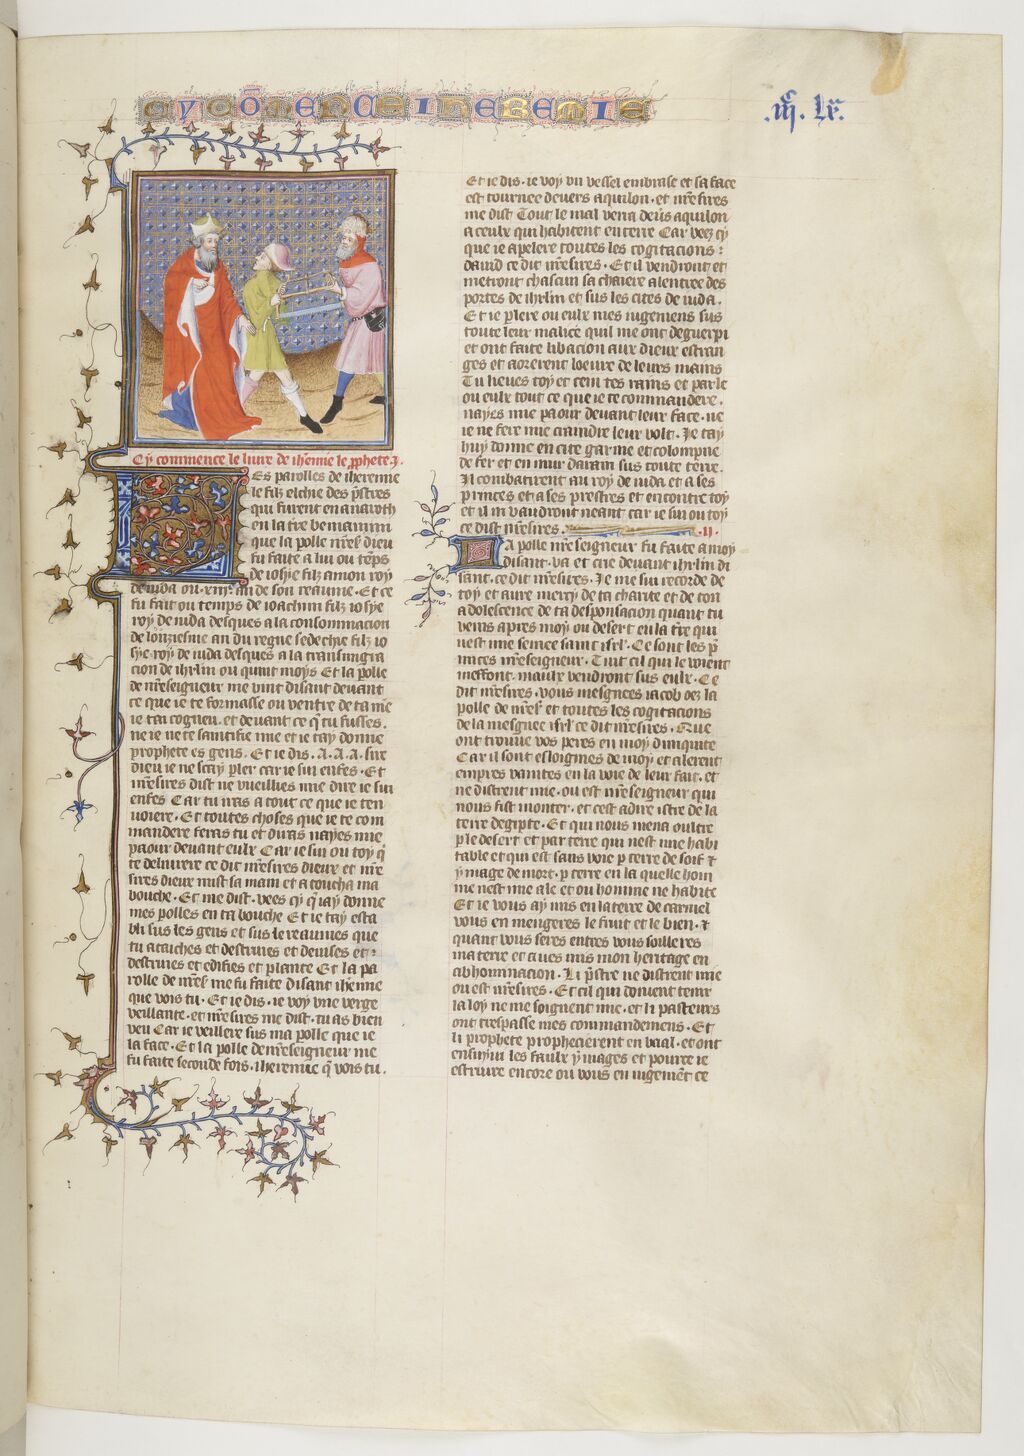 CY CÕMENCE IHEREMIE
.iiic. Lx.
Cy commence le livre de iheremie le pphete.
Les parolles de iheremie
le filz elchie des pstres
qui furent en anatoth
en la tre beniamin
que la polle nrẽ dieu
fu faite a lui ou temps
de iosye filz amon roy
de iuda ou xiije an de son reaume. Et ce
fu fait ou temps de ioachim filz iosye
roy de iuda desques a la consommacion
de lonziesme an du regne sedechie filz io
sye roy de iuda desques a la transmigra
cion de ihrlm ou quint moys Et la polle
de nrẽseigneur me vint disant devant
ce que ie te formasse ou ventre de ta me
ie tai cogneu. et devant ce q tu fusses.
ne ie ne te saintefie mie et ie tay donne
prophete es gens. Et ie dis. A. A. A. sire
dieu ie ne scay pler car ie sui enfes. Et
nrẽsires dist ne vueilles mie dire ie sui
enfes Car tu iras a tout ce que ie ten
voiere. Et toutes choses que ie te com
mandere feras tu et diras nayes mie
paour devant eulx Car ie sui ou toy q
te deliurere ce dit nrẽsires dieux et nrẽ
sires dieux mist sa main et a toucha ma
bouche. Et me dist. vees cy q iay donne
mes polles en ta bouche Et ie tay esta
bli sus les gens et sus le reaumes que
tu ataiches et destruies et devises et
destruies et edifies et plante Et la pa
rolle de nrẽs me fu faite disant iherime
que vois tu. Et ie dis. ie voy vne verge
veillante. et nrẽsires me dist. tu as bien
veu Car ie veillere sus ma polle que ie
la face. Et la polle de nrẽseigneur me
fu faite seconde fois. iheremie q vois tu.
Et ie dis. ie voy vn vessel embrase et sa face
est tournee devers aquilon. et nrẽ sires
me dist Tout le mal vena deus aquilon
a ceulx qui habitent en terre Car veez cy
que ie apelere toutes les cogitacions
dauid ce dit nrẽsires. Et il vendront et
metront chascun sa chaiere a lentree des
portes de ihrlm et sus les cites de iuda.
Et ie plere ou eulx mes iugemens sus
toute leur malice quil me ont deguerpi
et ont faite libacion aux dieux estran
ges et aorerent loeure de leurs mains
Tu lieues toy et cein tes rains et parle
ou eulx tout ce que ie te commandere.
nayes mie paour devant leur face. ne
ie ne fere mie craindre leur volt. Ie tay
huy donne en cite garnie et colompne
de fer et en mur darain sus toute terre.
Il combatirent au roy de iuda et a ses
princes et a ses prestres et encontre toy
et il ni vaudront neant car ie sui ou toy
ce dist nrẽsires. .ii.
La polle nrẽseigneur fu faite a moy
disant. va et crie devant ihrlm di
sant. ce dit nrẽsires. Ie me sui recorde de
toy et aure mercy de ta charite et de ton
adolescence de ta desponsacion quant tu
venis apres moy ou desert en la tre qui
nest mie semee saint isrl. Ce sont les p
mices nrẽseigneur. Tuit cil qui le
meffont. maulx vendront sus eulx. Ce
dit nrẽsires. vous mesgnees iacob oez la
polle de nrẽs et toutes les cogitacions
de la mesgnee isrl ce dit nrẽsires. Que
ont trouve vos peres en moy diniquite
Car il sont eslongnes de moy et alerent
empres vanites en la voie de leur fait. et
ne distrent mie. ou est nrẽseigneur qui
nous fist monter. et cest adire istre de la
terre degipte. Et qui nous mena oultre
ple desert et par terre qui nest mie habi
table et qui est sans voie p terre de soif et
ymage de mort. p terre en la quelle hom
me nest mie ale et ou homme ne habite
Et ie vous ay mis en la terre de carmel
vous en mengeres le fruit et le bien. et
quant vous seres entres vous soilleres
ma terre et aves mis mon heritage en
abhominacion. Li pstre ne distrent mie
ou est nrẽsires. Et cil qui doivent tenir
la loy ne me soignent mie. et li pasteurs
ont trespasse mes commandemens. Et
li prophete prophecierent en baal. et ont
ensuyui les faulx ymages et pource ie
estriure encore ou vous en iugement ce